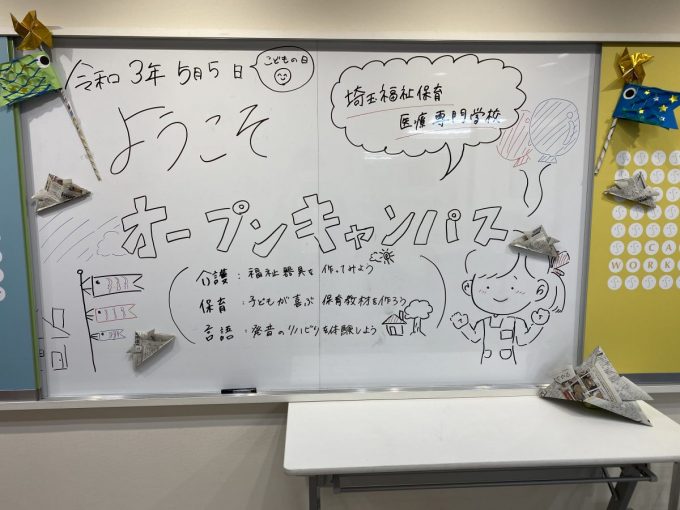 令和3年5月5日
こどもの日
埼玉福祉保育
医療専門学校
ようこそ
オープンキャンパス
介護：福祉器具を作ってみよう
保育：子どもが喜ぶ保育教材を作ろう
言語：発音のリハビリを体験しよう
CA
WORK